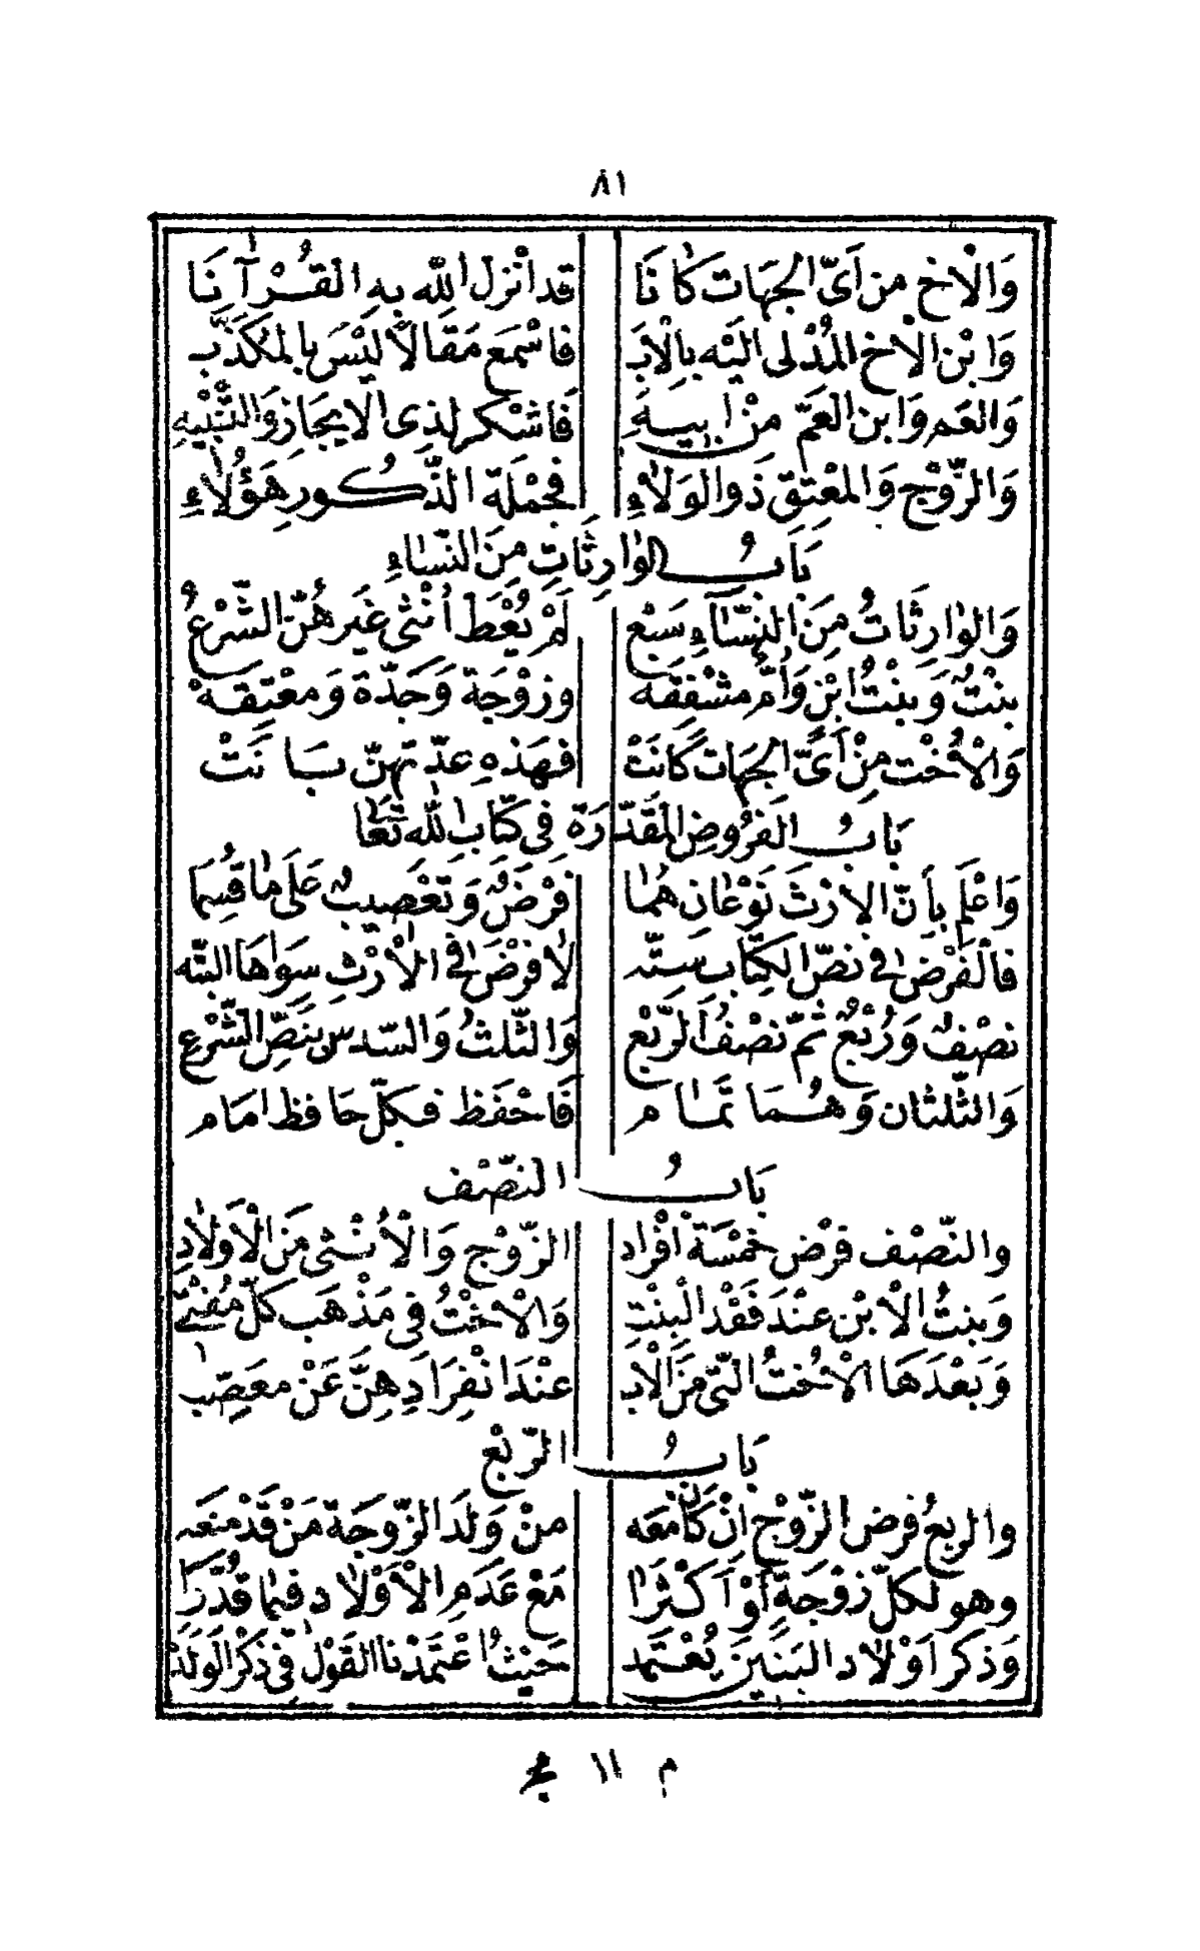 ٨١
وَالْاَخِ مِن اَىِّ الجِهَاتَ كَانَا قد اَنْزل اللّٰه بِهِ القُرْآنَا
وَابْن الْاَخِ المُدْلى اليْه بِالْاَبَ فاسْمَع مَقَالاً ليْسَ بالمكَذَّبِ
وَالعَم وَابن العَمِّ مِنْ ابيهِ فَاشْكر لذِى الايجَازِ وَالتَّنْبْيهِ
وَالزَّوْج وَالمعْتِقِ ذَوالوَلَاءِ فَجُمْلَة الذُّكورِ هَؤُلَاءِ
بَابُ الوَارِثَاتِ مِنَ النّسَاءِ
وَالوَارِثَاتُ مِنَ النِّسَاءِ سَبْع لَمْ يُعْطَ اُنْثى غَيْرهُنّ الشَّرْعُ
بنْتٌ وَبنْتُ ابْنٍ وَاُمٌّ مشْفِقَه وزوْجَة وَجَدّة وَمعْتِقَهْ
وَالْاُخْت مِنْ اَىِّ الجِهَات كَانَتْ فهَذهِ عِدّتهنّ بَانَتْ
بَابُ الفرُوضِ المقَدّرَة فى كتَابِ اللّٰه تَعَا
وَاعْلَم بِاَنّ الارْثَ نَوْعَانِ هُمَا فَرْضٌ وَتَعْصِيبٌ عَلَى مَا قُسِمَا
فالْفَرْض فى نصّ الكِتَاب ستّه لَا فرْضَ فى الْاِرْثِ سِوَاهَا البتّه
نصْفٌ وَرُبْعٌ ثمّ نصْفُ الرَّبْع وَالثّلثُ وَالسّدس بنَصِّ الشَّرْعِ
وَالثّلثان وَهُمَا تَمَام فَاحْفَظ فكلّ حَافظ امَام
بَابُ النّصْف
والنّصْف فرْض خمْسَة اَفْرَاد الزّوْج وَالْاُنْثى مَن الْاَوْلَادِ
وَبنتُ الْابْن عنْدَ فَقْد البنْتِ وَالْاخْتُ فى مَذْهَب كلّ مُفْتى
وَبَعْدَهَا الْاُخْتُ الّتى مَنَ الْاَب عنْدَ انْفِرَادِهِنَّ عَنْ معَصّب
بَابُ الرّبْع
والربعُ فرض الزّوْج اِنْ كَانَ مَعَه منْ وَلَدَ الزّوجَة مَنْ قَدْ منَعَه
وهو لكلّ زوْجَةٍ اَوْ اَكْثَرَا مَعْ عَدَمِ الْاَوْلَاد فيمَا قُدّرَا
وَذكر اَوْلَاد البَنينَ يُعْتَمَد حَيْثُ اعْتَمَدْنا القَوْلَ فى ذكْر الوَلَدْ
م ١١